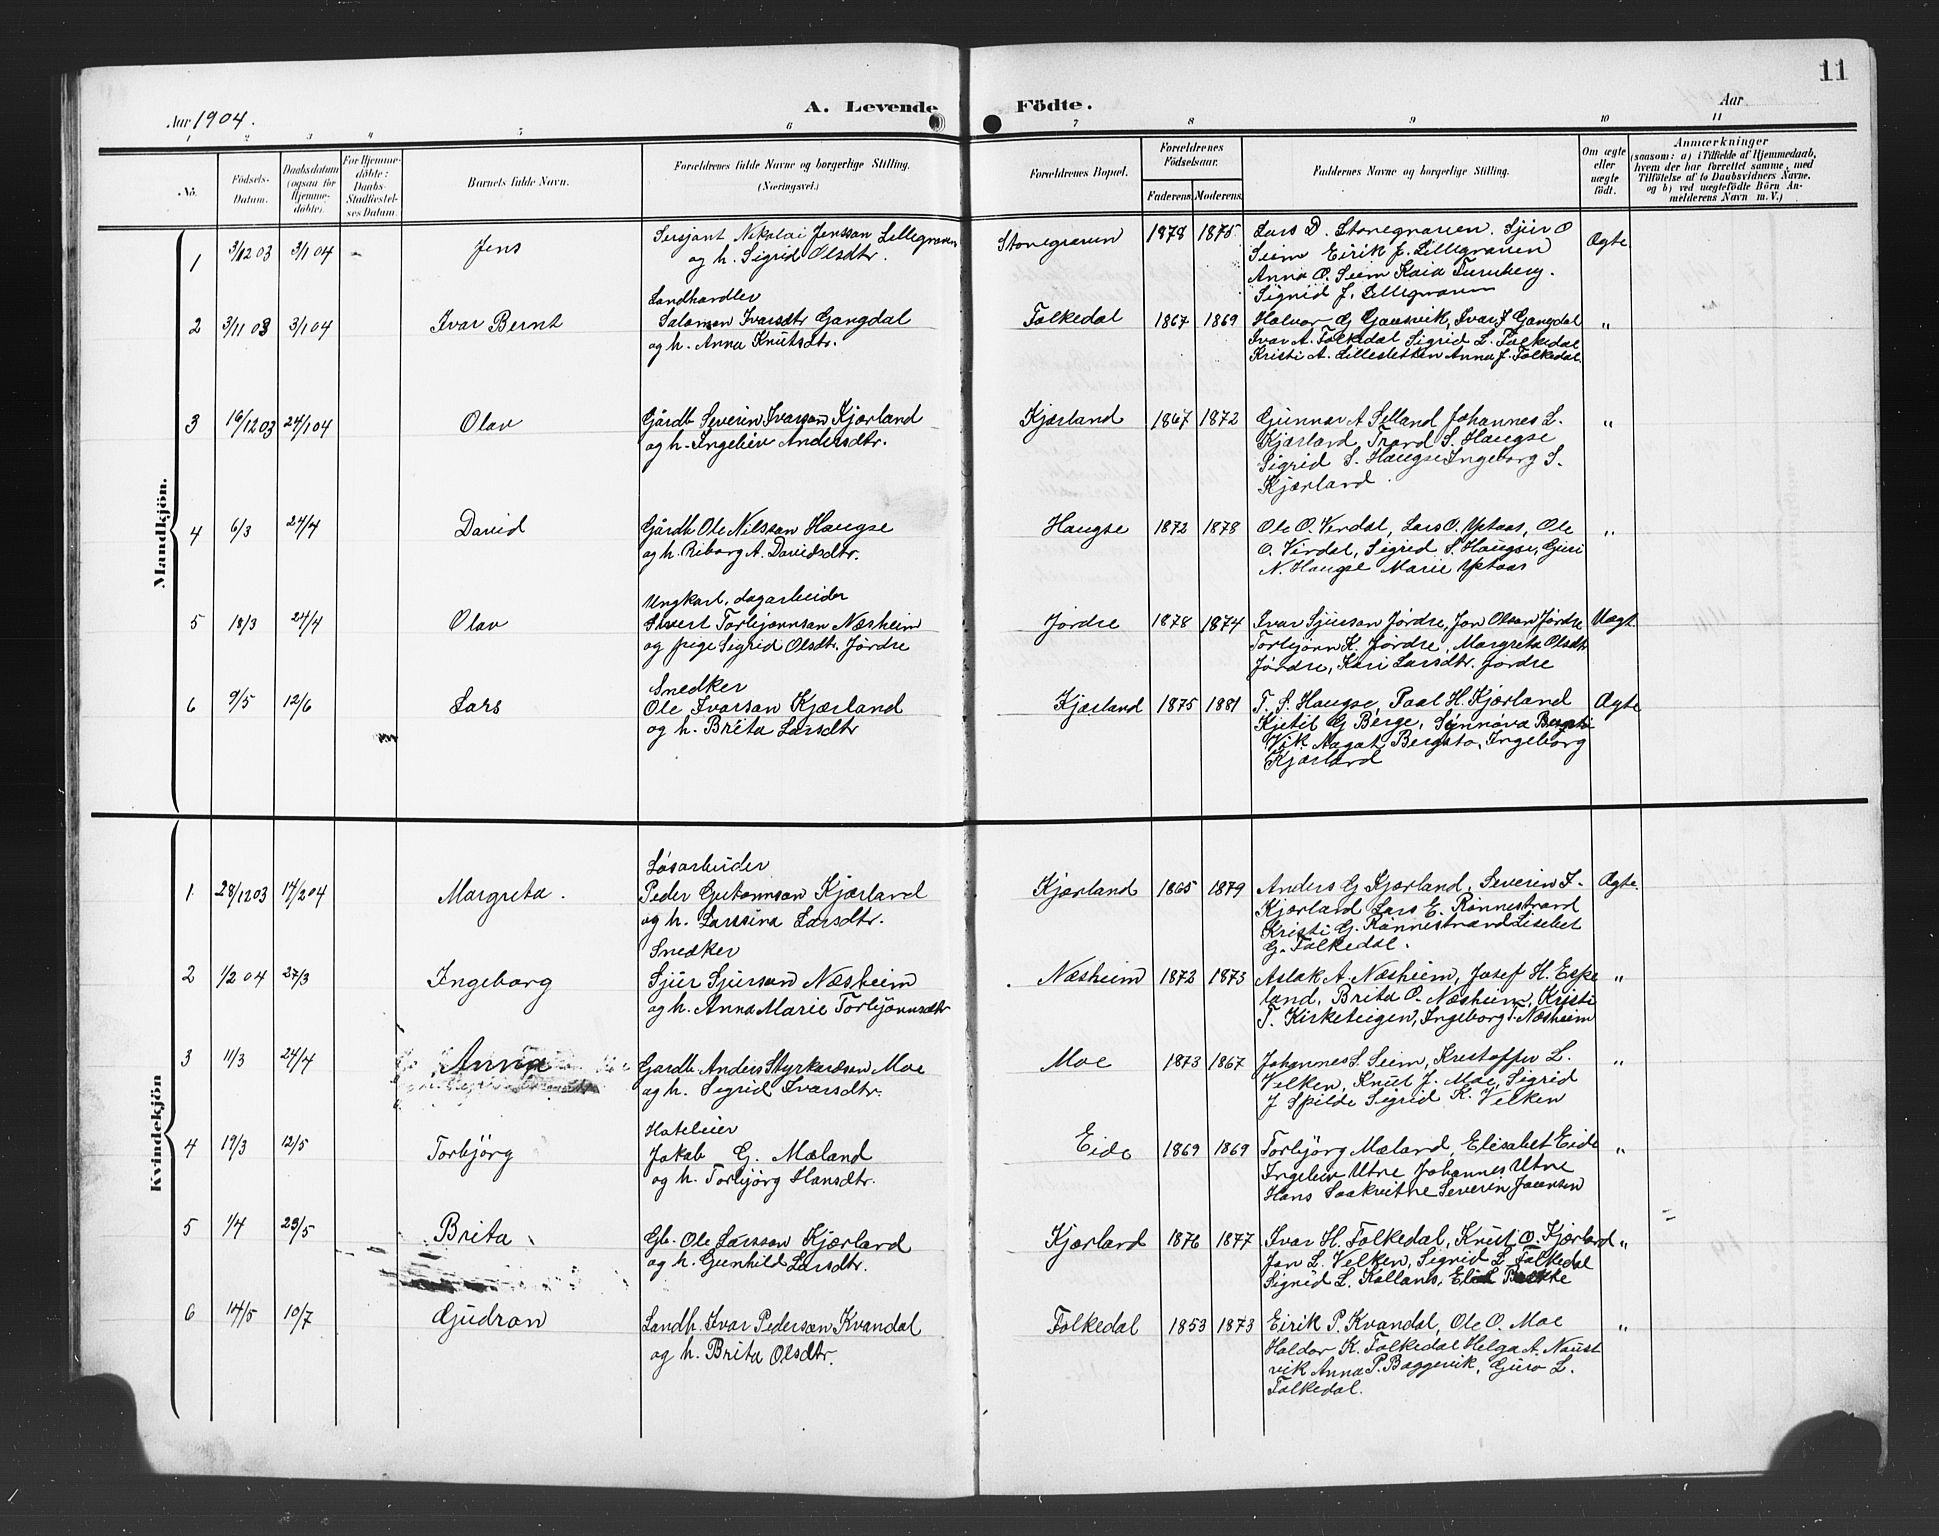 11
Aar 1904.
A. Levende Födte.
Aar
1 2 3 4 5 6 7 8 9 10 11
No.
Födsels-Datum.
Daabsdatum (ogsaa for Hjemmedöbte).
For Hjemmedöbte: Daabs-Stadfæstelses Datum.
Barnets fulde Navn.
Forældrenes fulde Navne og borgerlige Stilling. (Næringsvei.)
Forældrenes Bopæl.
Forældrenes Födselsaar.
Faderens. Moderens.
Faddernes Navne og borgerlige Stilling.
Om ægte eller uægte födt.
Anmærkninger
(saasom: a) i Tilfælde af Hjemmedaab, hvem der har forrettet samme, med Tilföielse af to Daabsvidners Navne, og b) ved uægtefödte Börn Anmelderens Navn m. V.)
Mandkjön.
1 3/12 03 3/1 04 - Jens
Sersjant Nikolai Jensson Lillegraven
og h. Sigrid Olsdtr.
Storegraven 1878 1875
Lars D. Storegraven. Sjur O
Seim Eirik J. Lillegraven
Anna O. Seim Kaia Turnberg.
Sigrid J. Lillegraven
Ægte
2 3/11 03 3/1 04 Ivar Bernt
Landhandler
Salomon Ivarsdtr Gangdal
og h. Anna Knutsdtr.
Folkedal 1867 1869
Halvor G Gausvik, Ivar J Gangdal
Ivar A. Folkedal Sigrid L. Folkedal
Kristi A. Lillesletten Anna J. Folkedal.
"
3 16/12 03 24/1 04 Olav
Gårdb Severin Ivarson Kjærland
og h. Ingeleiv Andersdtr.
Kjærland 1867 1872
Gunnar A Selland Johannes L.
Kjærland Trond S. Haugse
Sigrid S. Haugse Ingeborg S.
Kjærland.
"
4 6/3 24/4 David
Gårdb Ole Nilsson Haugse
og h. Riborg A. Davidsdtr.
Haugse 1872 1878
Ole O. Virdal, Lars O. Ystaas, Ole
O. Virdal, Sigrid S. Haugse, Guri
N. Haugse Marie Ystaas
"
5 18/3 24/4 Olav
Ungkarl, dagarbeider
Sivert Torbjønnson Næsheim
og pige Sigrid Olsdtr. Jørdre
Jørdre 1878 1874
Ivar Sjurson Jørdre, Jon Olson Jørdre
Torbjørn K. Jørdre, Margreta Olsdtr
Jørdre, Kari Larsdtr. Jørdre
Uægt.
6 9/5 12/6 Lars
Snedker
Ole Ivarson Kjærland
og h. Brita Larsdtr
Kjærland 1875 1881
T. S. Haugse, Paal H. Kjærland
Kjetil G Berge, Synnøva
Vik Aagat Bergsto, Ingeborg
Kjærland
Ægte
Kvindekjön
1 28/12 03 14/2 04 Margreta.
Løsarbeider
Peder Guttormson Kjærland
og h. Larssina Larsdtr.
Kjærland 1865 1879
Anders G Kjærland, Severin I.
Kjærland Lars E. Rønnestrand
Kristi G. Rønnestrand Lisebet
G. Folkedal.
Ægte.
2 1/2 04 27/3 Ingeborg
Snedker
Sjur Sjurson Næsheim
og h. Anna Marie Torbjønnsdtr
Næsheim 1872 1873
Aslak A. Næsheim, Josef H. Espe
land, Brita O. Næsheim, Kristi
T. Kirketeigen, Ingeborg T. Næsheim
"
3 11/3 24/4 Anna
Gardb Anders Styrkarson Moe
og h. Sigrid Ivarsdtr.
Moe 1873 1867
Johannes S. Seim, Kristoffer L.
Velken, Knut J. Moe, Sigrid
J Spilde Sigrid K. Velken
"
4 19/3 12/5 Torbjörg
Hoteleier
Jakob G. Mæland
og h. Torbjörg Hansdtr.
Eide 1869 1869
Torbjörg Mæland, Elisabet Eide
Ingeleiv Utne Johannes Utne
Hans Saakvitne Severin
"
5 1/4 23/5 Brita
Gb. Ole Larsson Kjærland
og h. Gunhild Larsdtr.
Kjærland 1876 1877
Ivar H. Folkedal, Knut O. Kjærland
Jon L. Velken, Sigrid L. Folkedal
Sigrid L. Kollans,
"
6 14/5 10/7 Gudron
Landh. Ivar Pederson Kvandal
og h. Brita Olsdtr.
Folkedal 1853 1873
Eirik P. Kvandal, Ole O. Moe
Haldor K. Folkedal Helga A. Naust
vik Anna P. Baggevik, Guro L.
Folkedal.
"